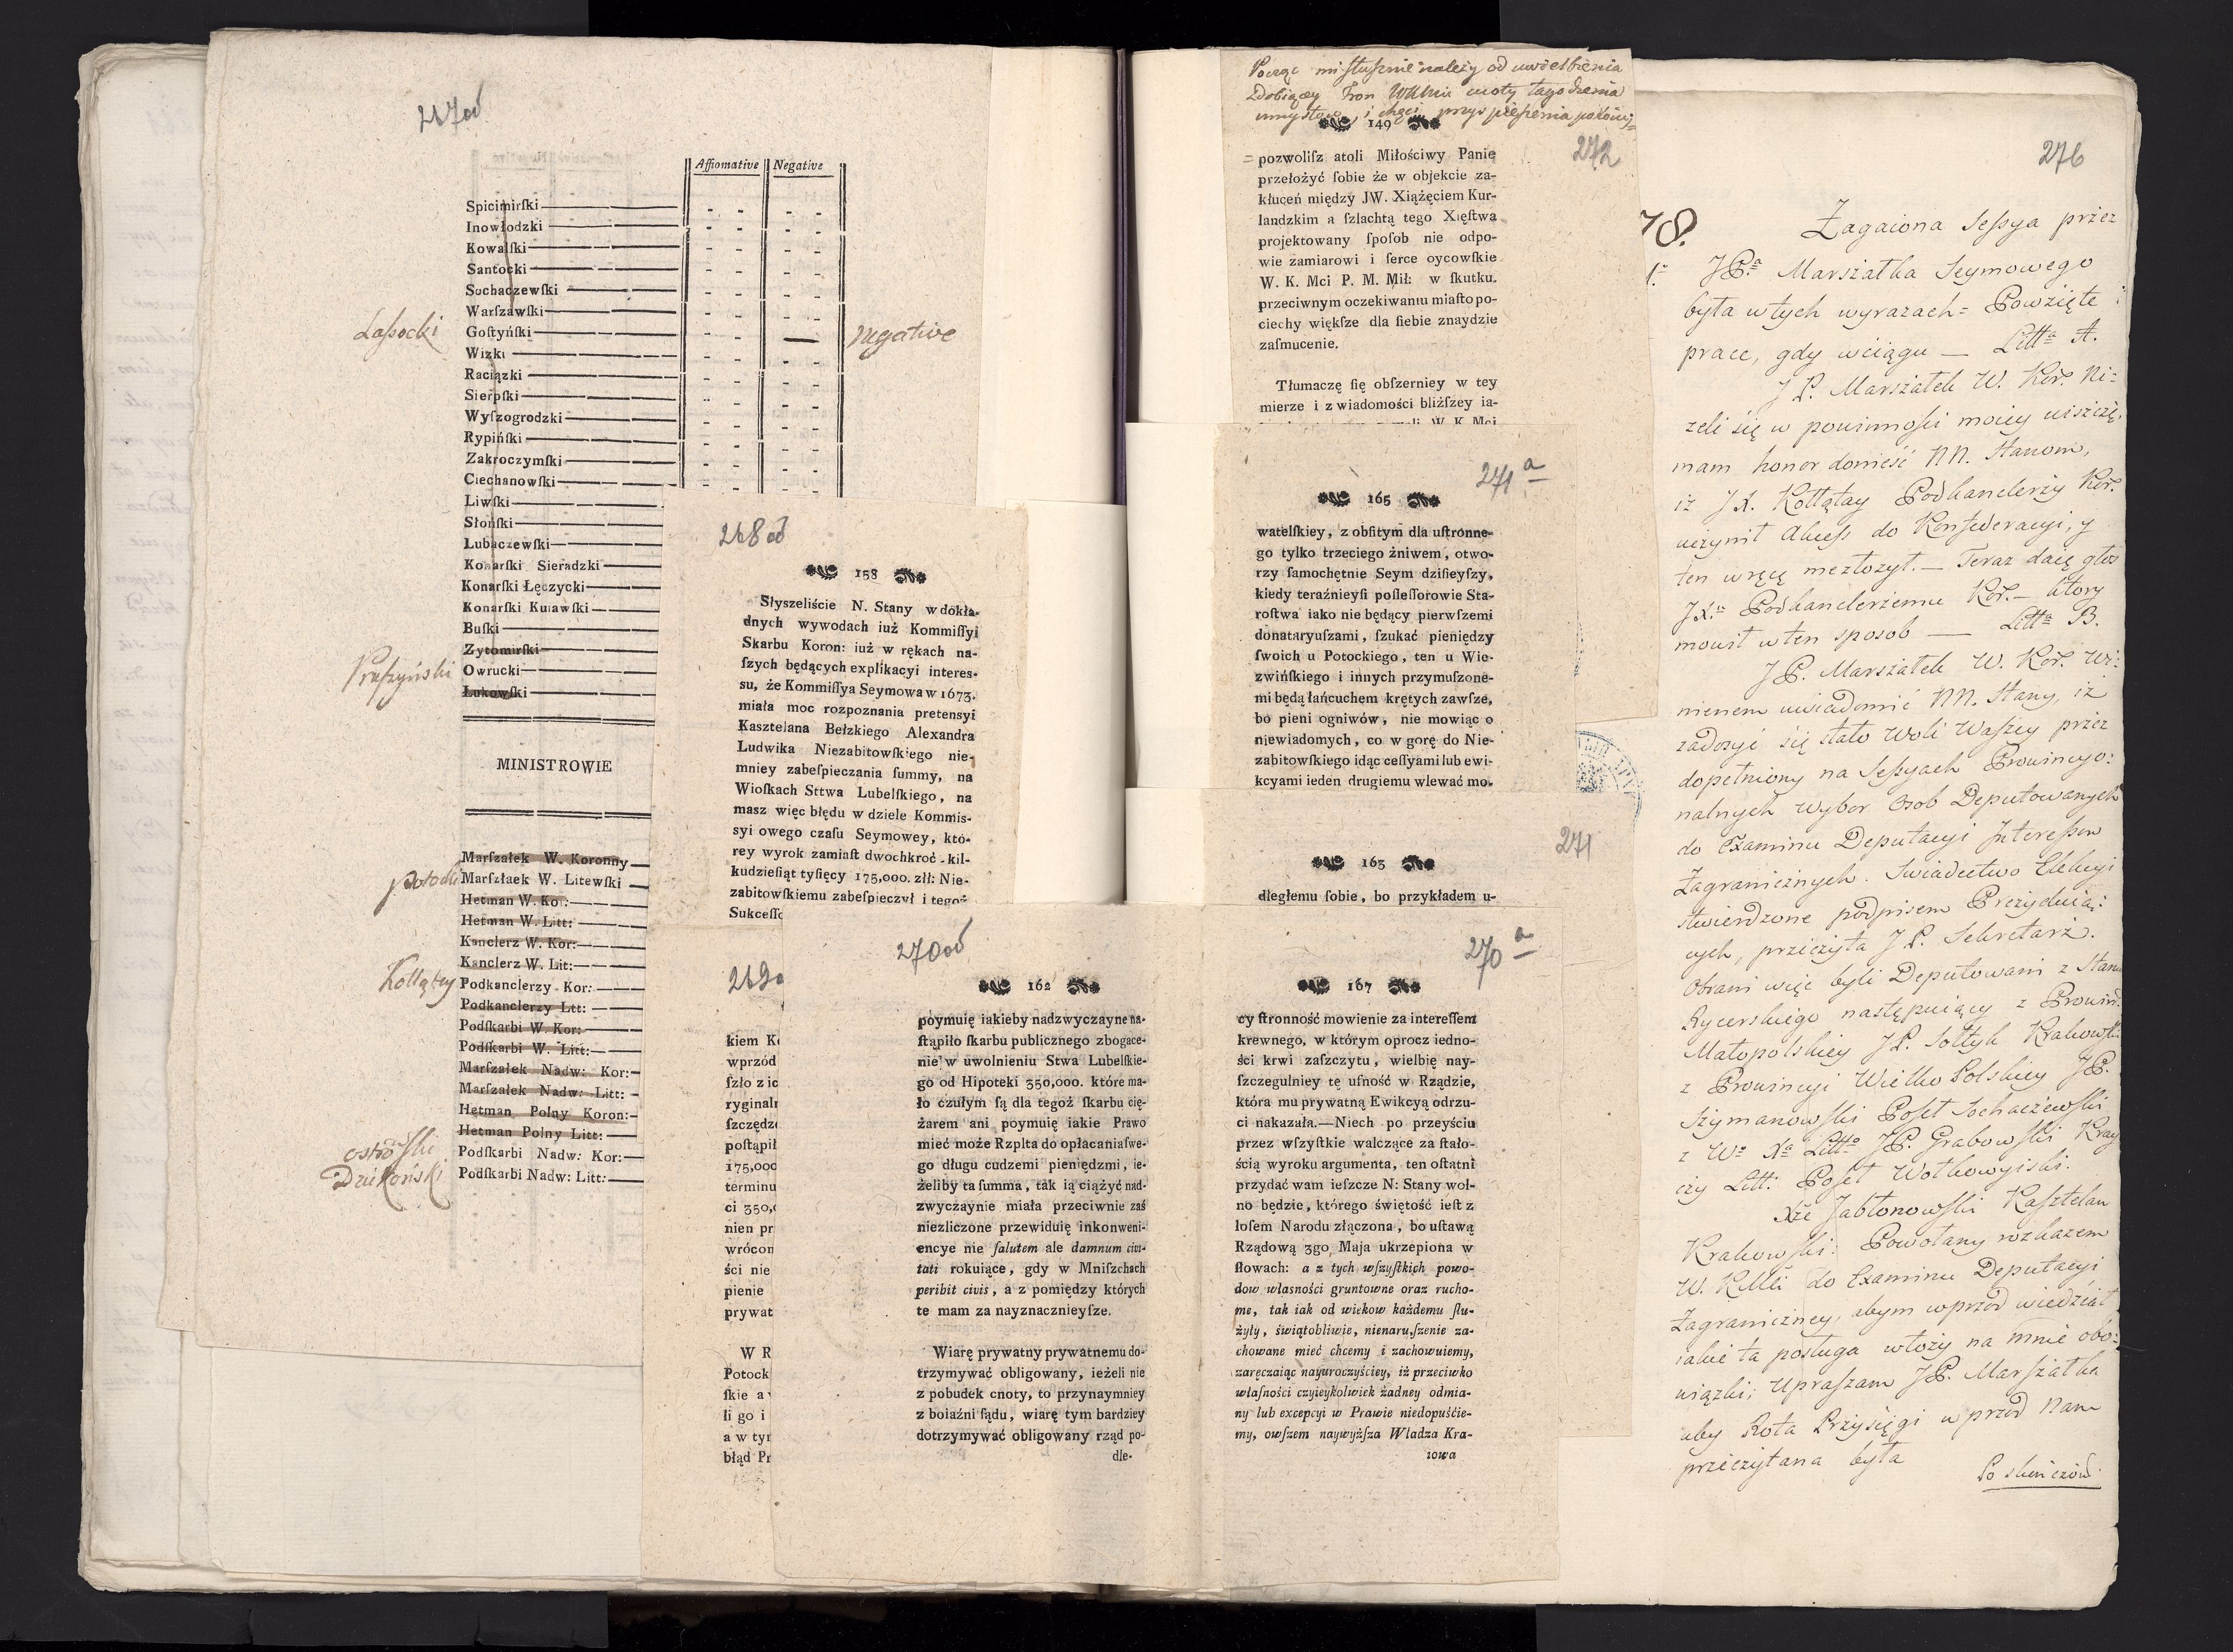 217od
Affiomative Negative
Spicimirſki
Inowłodzki
Kowalſki
Santocki
Sochaczewſki
Warſzawſki
Laſsocki Goſtyńſki negative
Wizki
Raciązki
Sierpſki
Wyſzogrodzki
Rypińſki
Zakroczymſki
Ciechanowſki
Liwſki
Słońſki
Lubaczewſki
Konarſki Sieradzki
Konarſki Łęczycki
Konarſki Kuiawſki
Buſki
Zytomirſki
Pruſzyński Owrucki
Łukowſki
MINISTROWIE
Marſzałek W. Koronny
Potocki Marſzłaek W. Litewſki
Hetman W. Kor:
Hetman W. Litt:
Kanclerz W. Kor:
Kanclerz W. Lit:
Kołłątay Podkanclerzy Kor:
Podkanclerzy Ltt:
Podſkarbi W. Kor:
Podſkarbi W. Litt:
Marſzałek Nadw: Kor:
Marſzałek Nadw: Litt:
Hetman Polny Koron:
Hetman Polny Litt:
Ostroſki Podſkarbi Nadw: Kor:
Dziekoński Podſkarbi Nadw: Litt:
268 od
158
Słyszeliście N. Stany w dokła-
dnych wywodach iuż Kommiſſyi
Skarbu Koron: iuż w rękach na-
ſzych będących explikacyi interes-
su, że Kommiſſya Seymowa w 1673.
miała moc rozpoznania pretensyi
Kasztelana Bełzkiego Alexandra
Ludwika Niezabitowſkiego nie-
mniey zabeſpieczania ſummy, na
Wioſkach Sttwa Lubelſkiego, na
masz więc błędu w dziele Kommis-
syi owego czaſu Seymowey, któ-
rey wyrok zamiaſt dwochkroć-kil-
kudzieſiąt tyſięcy 175,000. złł: Nie-
zabitowſkiemu zabeſpieczył i tegoż
Sukceſſo
269o
kiem Ko
wprzód
ſzło z ic
ryginaln
ſzczędze
poſtąpił
175,000
terminu
ci 350,0
nien pr
wrócon
ści nie
pienie
prywat
W R
Potock
ſkie a
li go i
a w tyr
błąd Pr
270od
162
poymuię iakieby nadzwyczayne na-
ſtąpiło ſkarbu publicznego zbogace-
nie w uwolnieniu Stwa Lubelſkie-
go od Hipoteki 350,000. które ma-
ło czułym ſą dla tegoż ſkarbu cię-
żarem ani poymuię iakie Prawo
mieć może Rzplta do opłacania ſwe-
go długu cudzemi pieniędzmi, ie-
żeliby ta ſumma, tak ią ciążyć nad-
zwyczaynie miała przeciwnie zaś
niezliczone przewiduię inkonweni-
encye nie ſalutem ale damnum civi-
tati rokuiące, gdy w Mniſzchach
peribit civis, a z pomiędzy których
te mam za nayznacznieyſze.
Wiarę prywatny prywatnemu do-
trzymywać obligowany, ieżeli nie
z pobudek cnoty, to przynaymniey
z boiaźni ſądu, wiarę tym bardziey
dotrzymywać obligowany rząd po-
dle-
Począc mi ſłuſznie należy od uwielbienia
Zdobiącey Tron WKMci cnoty łagodzenia
umysłow, i chęci przyspieſzenia pokoiu,
149
272
pozwoliſz atoli Miłościwy Panie
przełożyć ſobie że w objekcie za-
kłuceń między JW. Xiążęciem Kur-
landzkim a ſzlachtą tego Xięſtwa
projektowany ſpoſob nie odpo-
wie zamiarowi i ſerce oycowſkie
W. K. Mci P. M. Mił: w ſkutku.
przeciwnym oczekiwaniu miaſto po-
ciechy więkſze dla ſiebie znaydzie
zaſmucenie.
Tłumaczę ſię obſzerniey w tey
mierze i z wiadomości bliżſzey ia-
271 a
165
watelſkiey, z obfitym dla uſtronne-
go tylko trzeciego żniwem, otwo-
rzy ſamochętnie Seym dziſieyſzy,
kiedy teraźnieyſi poſſeſſorowie Sta-
roſtwa iako nie będący pierwſzemi
donataryuſzami, ſzukać pieniędzy
ſwoich u Potockiego, ten u Wie-
zwińſkiego i innych przymuſzone-
mi będą łańcuchem krętych zawſze,
bo pieni ogniwów, nie mowiąc o
niewiadomych, co w gorę do Nie-
zabitowſkiego idąc ceſſyami lub ewi-
kcyami ieden drugiemu wlewać mo-
271
163
dległemu ſobie, bo przykładem u-
270 a
167
cy ſtronność mowienie za intereſſem
krewnego, w którym oprocz iedno-
ści krwi zaſzczytu, wielbię nay-
ſzczegulniey tę ufność w Rządzie,
która mu prywatną Ewikcyą odrzu-
ci nakazała.—Niech po przeyściu
przez wſzyſtkie walczące za ſtało-
ścią wyroku argumenta, ten oſtatni
przydać wam ieſzcze N: Stany wol-
no będzie, którego świętość ieſt z
loſem Narodu złączona, bo uſtawą
Rządową 3go Maja ukrzepiona w
ſłowach: a z tych wſzyſtkich powo-
dow własności gruntowne oraz rucho-
me, tak iak od wiekow każdemu ſłu-
żyły, świątobliwie, nienaruſzenie za-
chowane mieć chcemy i zachowuiemy,
zaręczaiąc nayuroczyściey, iż przeciwko
właſności czyieykolwiek żadney odmia-
ny lub excepcyi w Prawie niedopuście-
my, owſzem naywyżſza Władza Kra-
iowa
276
78. Zagaiona Seſsya przez
JP.a Marszałka Seymowego
była w tych wyrazach = Powzięte
prace, gdy wciągu — Litt.a A.
J P. Marszałek W. Kor. Ni-
zeli się w powinności moiey uiszczę,
mam honor donieść NN. Stanom,
iż J X. Kołłątay Podkanclerzy Kor.
uczynił Akceſs do Konfederacyi, y
ten w ręcę me złozył. — Teraz daię głos
JX.u Podkanclerzemu Kor. — ktory
mowił w ten sposob — Litt.a B.
JP. Marszałek W. Kor. Wi-
nienem uwiadomić NN. Stany, iz
zadosyć się stało Woli Waszey przez
dopełniony na Seſsyach Prowincyo-
nalnych Wybor Osob Deputowanych
do Examinu Deputacyi Intereſsow
Zagranicznych. Swiadectwo Elekcyi
stwierdzone podpisem Prezyduią-
cych, przeczyta J P. Sekretarz.
Obrani więc byli Deputowani z Stanu
Rycerskiego następuiący z Prowin.
Małopolskiey JP. Sołtyk Krakowſki
z Prowincyi Wielko Polskiey JP.
Szymanowſki Poseł Sochaczewſki
z W.o X.a Litt.o JP. Grabowſki Kray
czy Litt: Poseł Wołkowyiski.
Xże Jabłonowſki Kaſztelan
Krakowſki: Powołany rozkazem
W. KMci do Examinu Deputacyi
Zagraniczney, abym wprzod wiedział
iakie ta posługa włoży na mnie obo-
wiązki; Upraſzam JP. Marſzałka
aby Rota Przysięgi wprzod Nam
przeczytana była
Po skończow.